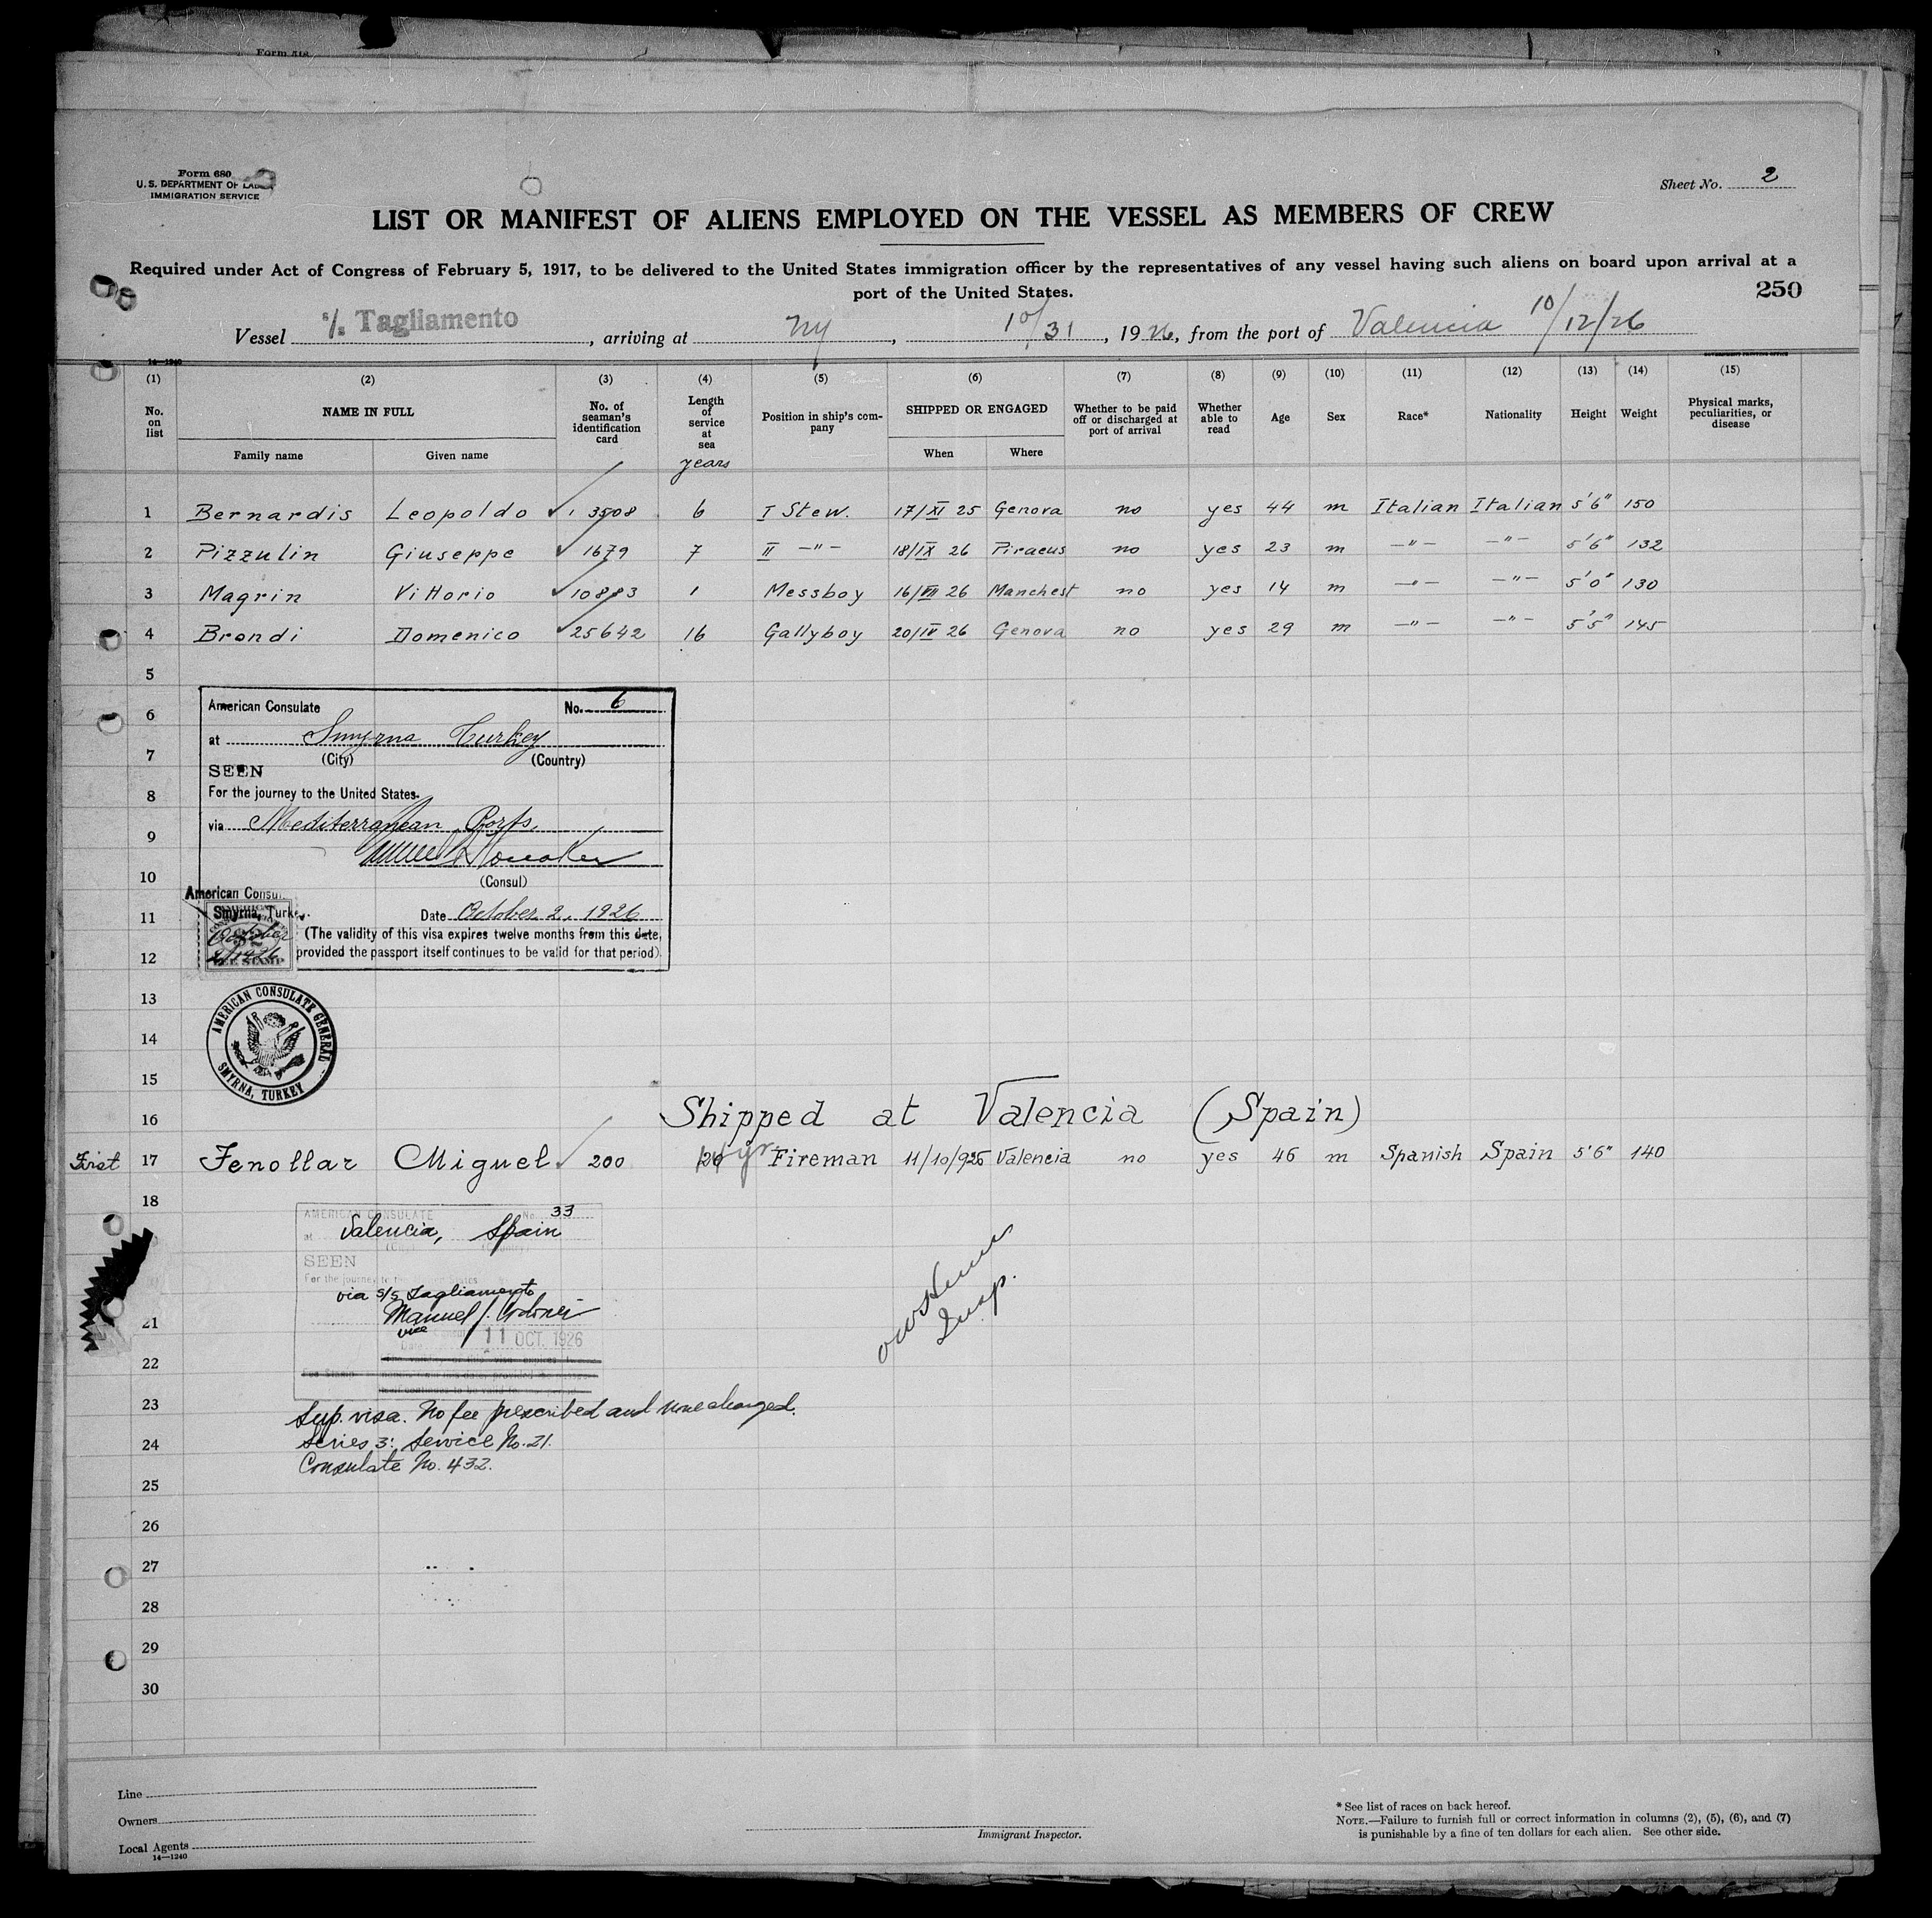 Form 680
U. S. DEPARTMENT OF LABOR
IMMIGRATION SERVICE
Sheet No. 2
LIST OR MANIFEST OF ALIENS EMPLOYED ON THE VESSEL AS MEMBERS OF CREW
Required under Act of Congress of February 5, 1917, to be delivered to the United States immigration officer by the representatives of any vessel having such aliens on board upon arrival at a
port of the United States.
250
Vessel s/s Tagliamento, arriving at NY, 10/31, 1926, from the port of Valencia 10/12/26
14—1240
(1) (2) (3) (4) (5) (6) (7) (8) (9) (10) (11) (12) (13) (14) (15)
No. on list
NAME IN FULL
Family name
Given name
No. of seaman's identification card
Length of service at sea
years
Position in ship's company
SHIPPED OR ENGAGED
When
Where
Whether to be paid off or discharged at port of arrival
Whether able to read
Age
Sex
Race*
Nationality
Height
Weight
Physical marks, peculiarities, or disease
1 Bernardis Leopoldo 3508 6 I Stew. 17/XI 25 Genova no yes 44 m Italian Italian 5'6" 150
2 Pizzulin Giuseppe 1679 7 II —"— 18/IX 26 Piraeus no yes 23 m —"— —"— 5'6" 132
3 Magrin Vittorio 10883 1 Messboy 16/VII 26 Manchest no yes 14 m —"— —"— 5'0" 130
4 Brondi Domenico 25642 16 Gallyboy 20/IV 26 Genova no yes 29 m —"— —"— 5'5" 145
5
6
7
8
9
10
11
12
13
14
15
American Consulate No. 6
at Smyrna Turkey
(City) (Country)
SEEN
For the journey to the United States.
via Mediterranean Ports.
(Consul)
American Consul
Smyrna, Turkey.
October 2, 1926
Date October 2, 1926
(The validity of this visa expires twelve months from this date,
provided the passport itself continues to be valid for that period).
AMERICAN CONSULATE GENERAL
SMYRNA, TURKEY
16 Shipped at Valencia (Spain)
First 17 Fenollar Miguel 200 yr Fireman 11/10/926 Valencia no yes 46 m Spanish Spain 5'6" 140
18
AMERICAN CONSULATE No. 33
at Valencia, Spain
SEEN
For the journey to the United States
via s/s Tagliamento
Manuel J.
vice
Date 11 OCT. 1926
Fee Stamp
Sup. visa. No fee prescribed and none charged.
Series 3: Service No. 21.
Consulate No. 432.
Insp.
21
22
23
24
25
26
27
28
29
30
Line
Owners
Local Agents
14—1240
Immigrant Inspector.
* See list of races on back hereof.
NOTE.—Failure to furnish full or correct information in columns (2), (5), (6), and (7)
is punishable by a fine of ten dollars for each alien. See other side.